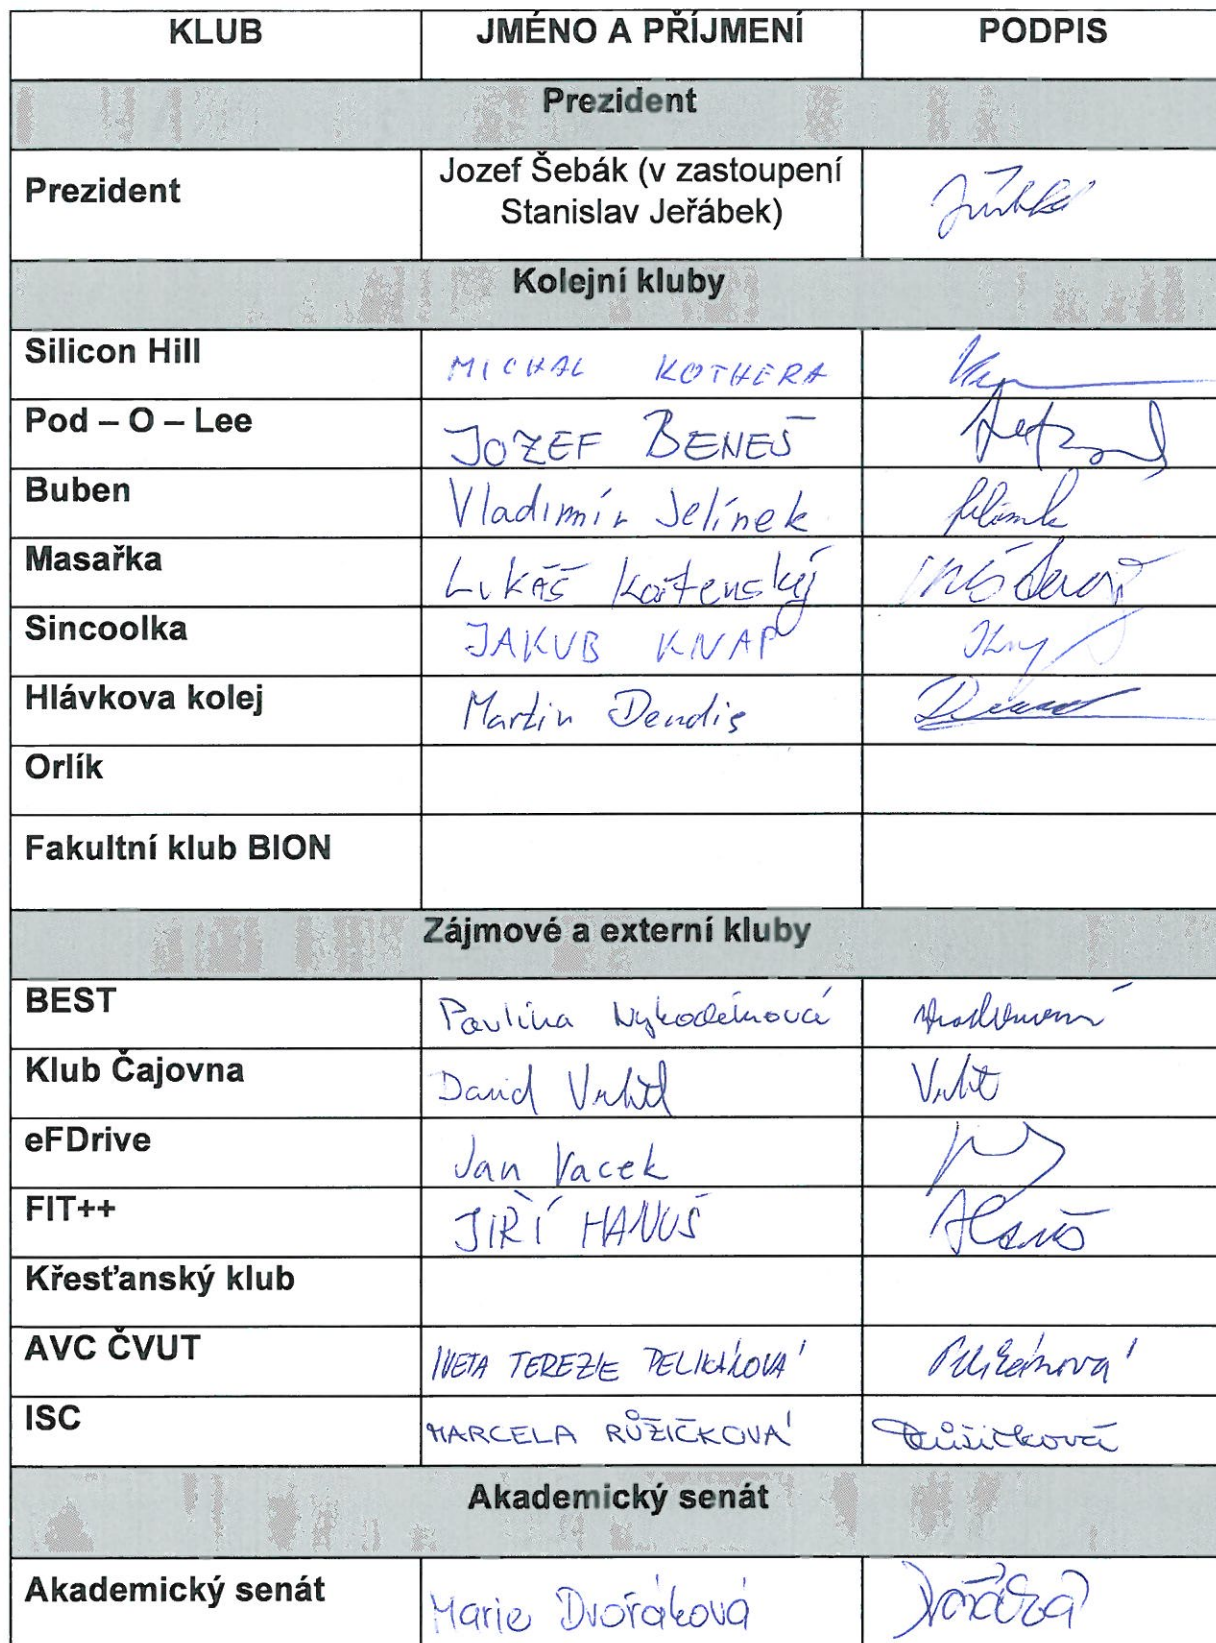 KLUB JMÉNO A PŘÍJMENÍ PODPIS
Prezident
Prezident Jozef Šebák (v zastoupení
Stanislav Jeřábek)
Kolejní kluby
Silicon Hill MICHAL KOTHERA
Pod – O – Lee JOZEF BENEŠ
Buben Vladimír Jelínek
Masařka LUKÁŠ
Sincoolka JAKUB KNAP
Hlávkova kolej Martin Dendis
Orlík
Fakultní klub BION
Zájmové a externí kluby
BEST Pavlína Nykodémová
Klub Čajovna David
eFDrive Jan Vacek
FIT++ JIŘÍ HANUŠ Hanuš
Křesťanský klub
AVC ČVUT IVETA TEREZIE PELIKÁNOVÁ Pelikánová
ISC MARCELA RŮŽIČKOVÁ Růžičková
Akademický senát
Akademický senát Marie Dvořáková